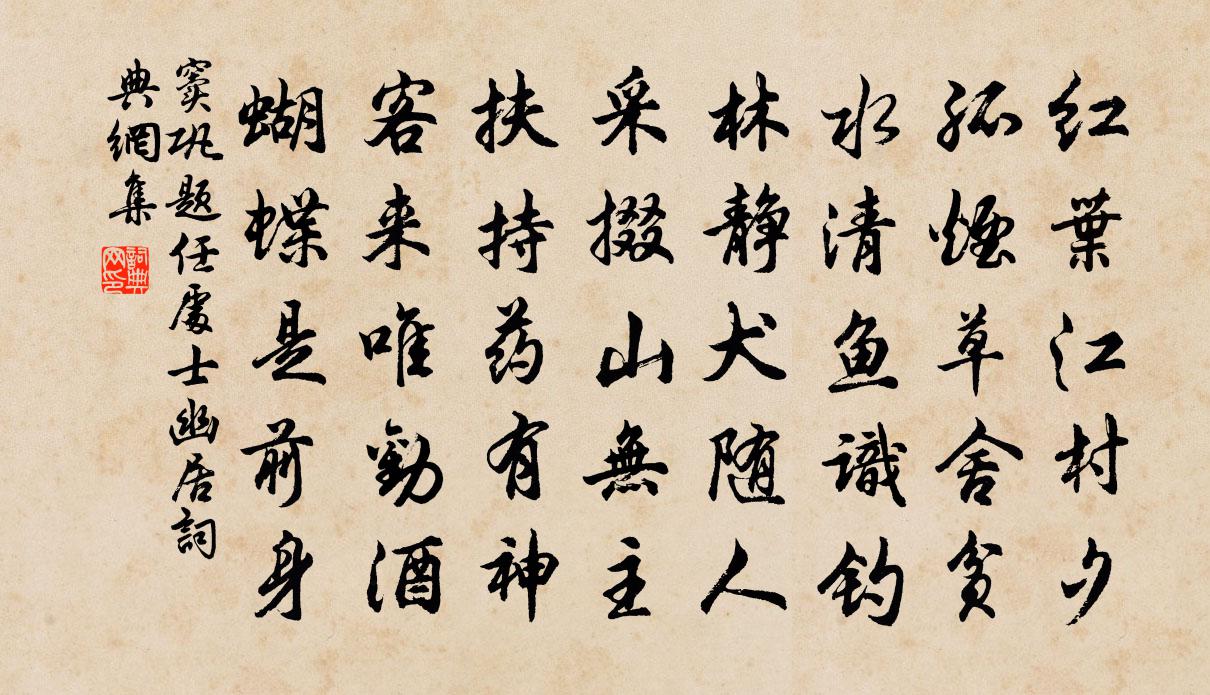 红葉江村夕
孤煙草舍贫
水清鱼識钓
林静犬随人
采掇山無主
扶持药有神
客来唯勸酒
蝴蝶是前身
窦巩题任處士幽居詞
典網集
詞典
网印